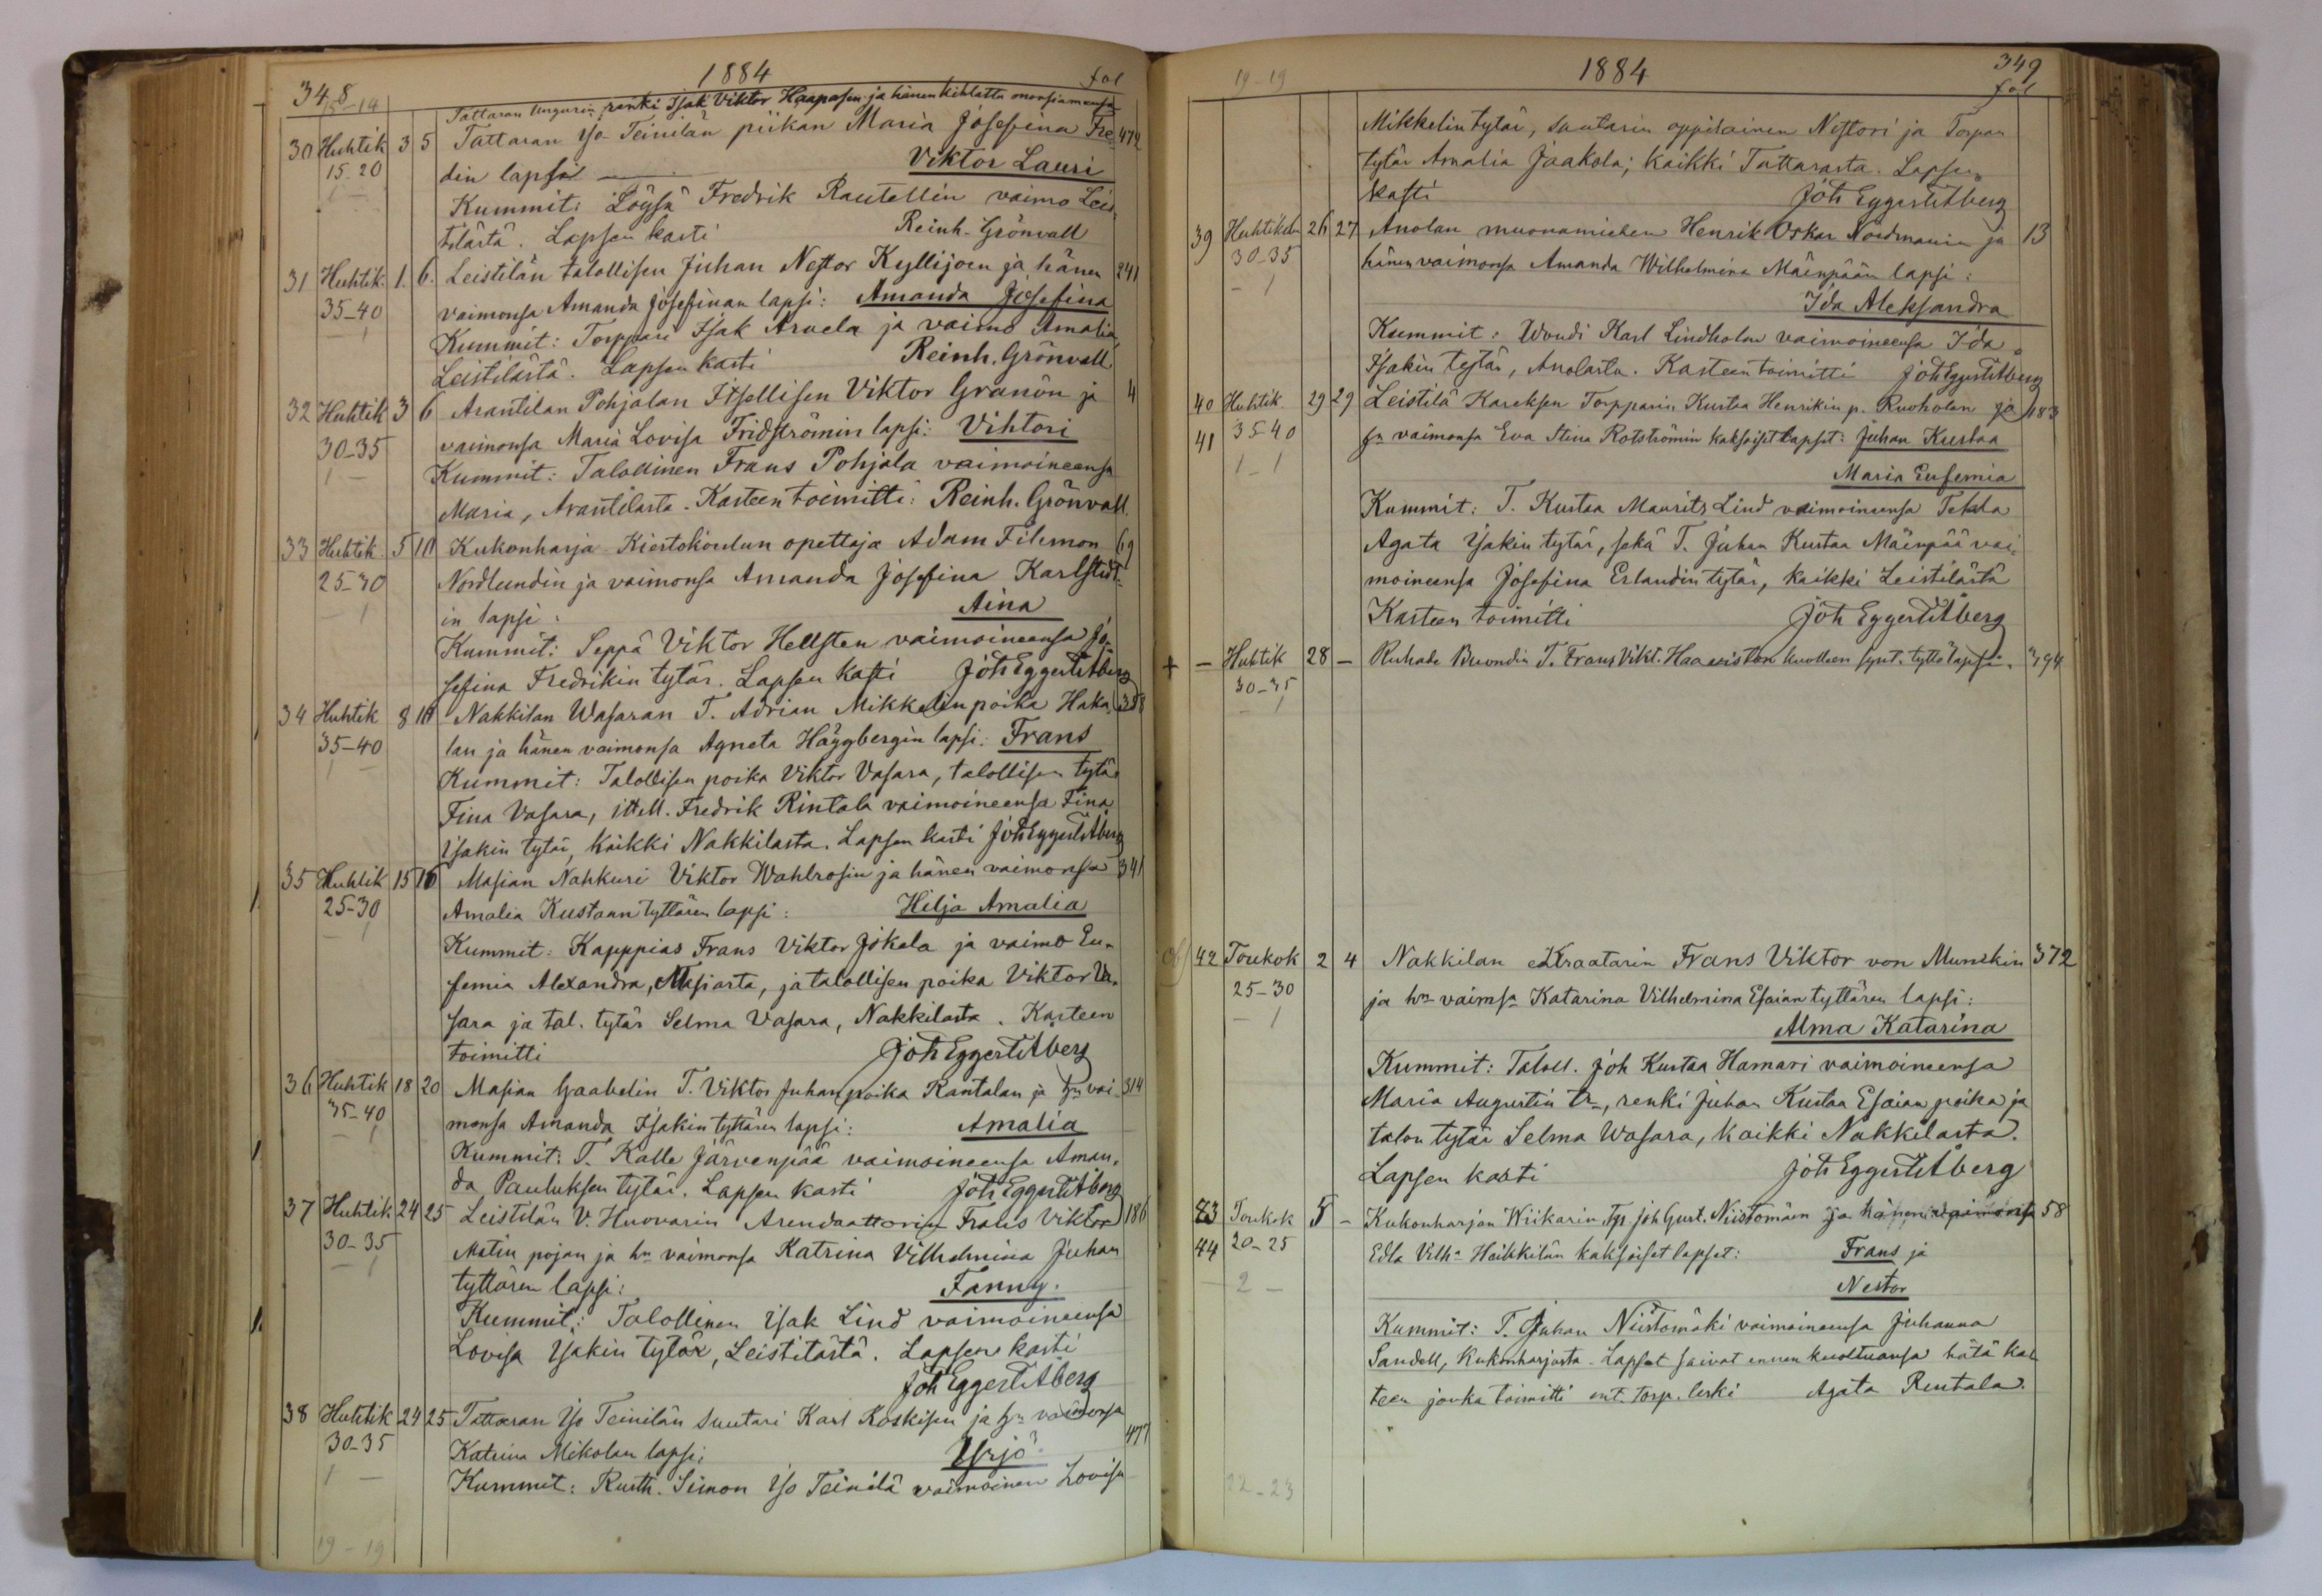 348 1884 fol
15-14
Tattaran Ungurin renki Isak Viktor Haapasen ja hänen kihlattu morsiamensa
30 Huhtik 3 5 Tattaran Yso Teinilän piikan Maria Josefina Fre- 472
15-20 din lapsi Viktor Lauri
1 —
Kummit: Löysä Fredrik Rautellin vaimo Leis
tilästä. Lapsen kasti Reinh. Grönvall
31 Huhtik. 1. 6. Leistilän talollisen Juhan Nestor Kyllijoen ja hänen 241
35-40 vaimonsa Amanda Josefinan lapsi: Amanda Josefina
— 1
Kummit: Torppari Isak Aruela ja vaimo Amalia,
Leistilästä. Lapsen kasti Reinh. Grönvall
32 Huhtik 3 6 Arantilan Pohjalan Itsellisen Viktor Granön ja 4
30-35 vaimonsa Maria Lovisa Fridströmin lapsi: Vihtori
1 —
Kummit: Talollinen Frans Pohjala vaimoineensa
Maria, Arantilasta. Kasteen toimitti: Reinh. Grönvall.
33 Huhtik. 5 10 Kukonharja Kiertokoulun opettaja Adam Filemon 69
25-30 Nordlundin ja vaimonsa Amanda Josefina Karlstedt-
— 1 in lapsi: Aina
Kummit: Seppä Viktor Hellsten vaimoineensa Jo-
sefina Fredrikin tytär. Lapsen kasti Joh Eggert Åberg
34 Huhtik 8 10 Nakkilan Wasaran T. Adrian Mikkelin poika Haka- 358
35-40 lan ja hänen vaimonsa Agneta Häggbergin lapsi: Frans
1 —
Kummit: Talollisen poika Viktor Vasara, talollisen tytä
Fina Vasara, itsell. Fredrik Rintala vaimoineensa Fina
Isakin tytär, kaikki Nakkilasta. Lapsen kasti Joh Eggert Åberg
35 Huhtik 15 16 Masian Nahkuri Viktor Wahlrosin ja hänen vaimonsa 341
25-30 Amalia Kustaan tyttären lapsi: Hilja Amalia
— 1
Kummit: Kapppias Frans Viktor Jokela ja vaimo Eu-
femia Alexandra, Masiasta, ja talollisen poika Viktor Va-
sara ja tal. tytär Selma Vasara, Nakkilasta. Kasteen
toimitti Joh Eggert Åberg
36 Huhtik 18 20 Masian Gaabelin T. Viktor Juhan poika Rantalan ja hn vai- 314
35-40 monsa Amanda Isakin tyttären lapsi: Amalia
— 1
Kummit: T. Kalle Järvenpää vaimoineensa Aman-
da Pauluksen tytär. Lapsen kasti Joh Eggert Åberg
37 Huhtik 24 25 Leistilän V. Huovarin Arendaattorin Frans Viktor 186
30-35 Matin pojan ja hn vaimonsa Katrina Vilhelmina Juhan
— 1 tyttären lapsi: Fanny.
Kummit: Talollinen Isak Lind vaimoineensa
Lovisa Isakin tytär, Leistilästä. Lapsen kasti
Joh Eggert Åberg
38 Huhtik 24 25 Tattaran Iso Teinilän Suutari Karl Koskisen ja hn vaimonsa 477
30-35 Katrina Mikolan lapsi: Yrjö
1 —
Kummit: Rusth. Simon Iso Teinilä vaimoinen Lovisa
19-19
19-19 1884 349
fol
Mikkelin tytär, suutarin oppilainen Nestori ja Torpan
tytär Amalia Jaakola; kaikki Tattarasta. Lapsen
kasti Joh Eggert Åberg
39 Huhtikuu 26 27 Anolan muonamiehen Henrik Oskar Nordmanin ja 13
30-35 hänen vaimonsa Amanda Wilhelmina Mäenpään lapsi:
— 1 Ida Aleksandra
Kummit: Woudi Karl Lindholm vaimoineensa Ida
Isakin tytär, Anolasta. Kasteen toimitti Joh Eggert Åberg
40 Huhtik. 29 29 Leistilä Kareksen Torpparin Kustaa Henrikin p. Ruoholan ja 183
41 35-40 hn vaimonsa Eva Stina Rotströmin kaksoiset lapset: Juhan Kustaa
1-1 Maria Eufemia
Kummit: T. Kustaa Maurits Lind vaimoineensa Tekla
Agata Isakin tytär, sekä T. Juhan Kustaa Mäenpää vai-
moineensa Josefina Erlandin tytär, kaikki Leistilästä
Kasteen toimitti Joh Eggert Åberg
+ — Huhtik 28 — Ruhade Buondin T. Frans Vikt. Haaviston kuolleen synt. tyttölapsi. 394
30-35
— 1
42 Toukok 2 4 Nakkilan Kraatarin Frans Viktor von Munckin 372
25-30 ja hn vaimsa Katarina Vilhelmina Esaian tyttären lapsi:
— 1 Alma Katarina
Kummit: Taloll. Joh Kustaa Hamari vaimoineensa
Maria Augustin tr, renki Juhan Kustaa Esaian poika ja
talon tytär Selma Wasara, kaikki Nakkilasta.
Lapsen kasti Joh Eggert Åberg
83 Toukok 5 — Kukonharjan Wiikarin Tp. Joh Gust. Niistomäen ja hänen vaimonsa 58
44 20-25 Edla Vilh. Heikkilän kaksoiset lapset: Frans ja
2 — Nestor
Kummit: T. Juhan Niistomäki vaimoineensa Juhanna
Sandell, Kukonharjasta. Lapset saivat ennen kuoltuansa hätä kas
teen jonka toimitti ent. torp. leski Agata Rentala.
22-23